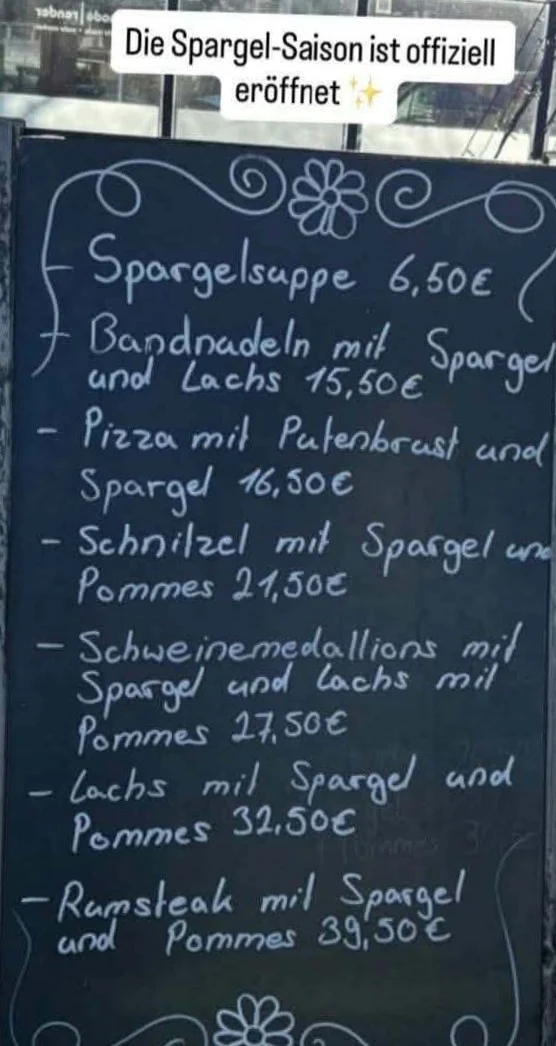 Die Spargel-Saison ist offiziell
eröffnet ✨
- Spargelsuppe 6,50€
- Bandnudeln mit Spargel
und Lachs 15,50€
- Pizza mit Putenbrust und
Spargel 16,50€
- Schnitzel mit Spargel und
Pommes 21,50€
- Schweinemedallions mit
Spargel und Lachs mit
Pommes 27,50€
- Lachs mit Spargel und
Pommes 32,50€
- Rumsteak mit Spargel
und Pommes 39,50€